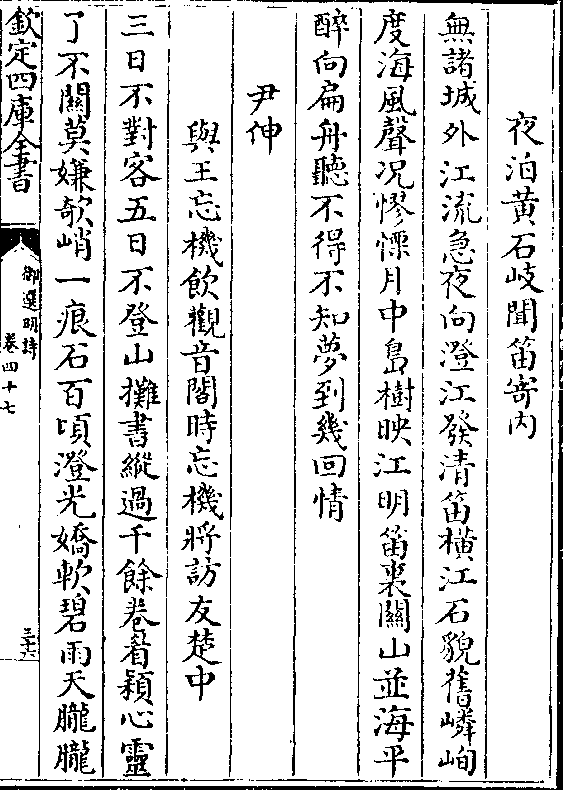 夜泊黄石岐聞笛寄内
無諸城外江流急夜向澄江發清笛橫江石貌舊嶙峋
度海風聲况憀慄月中島樹映江明笛裏關山並海平
醉向扁舟聽不得不知夢到幾回情
尹伸
與王忘機飲觀音閣時忘機將訪友楚中
三日不對客五日不登山攤書縱過千餘卷着穎心靈
了不關莫嫌欹峭一痕石百頃澄光嬌軟碧雨天朧朧
欽定四庫全書
御選明詩
卷四十七
三十六